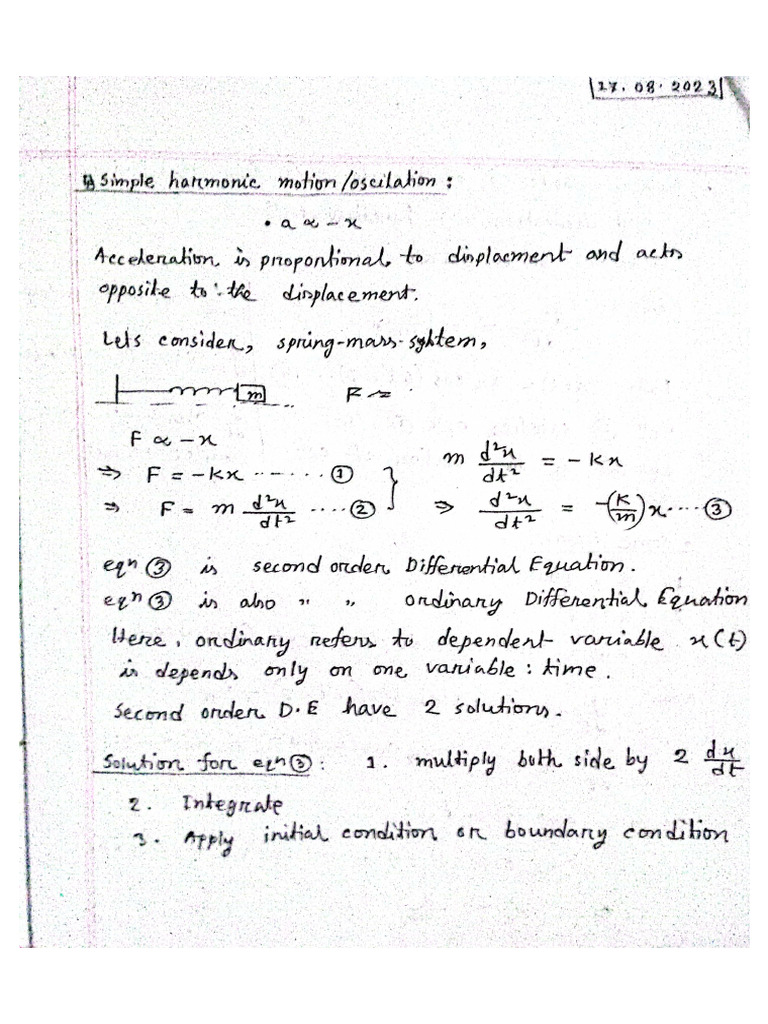 27.08.2023
Simple harmonic motion/oscilation:
• a ∝ -x
Acceleration is proportional to displacment and acts
opposite to the displacement.
Lets consider, spring-mass-system,
m F =
F ∝ -x
m d²x/dt² = -kx
⇒ F = -kx ...... ①
⇒ F = m d²x/dt² .... ② ⇒ d²x/dt² = -(k/m)x .... ③
eqn ③ is second order Differential Equation.
eqn ③ is also " " ordinary Differential Equation
Here, ordinary refers to dependent variable x(t)
is depends only on one variable: time.
Second order D.E have 2 solutions.
Solution for eqn ③: 1. multiply both side by 2 dx/dt
2. Integrate
3. Apply initial condition or boundary condition